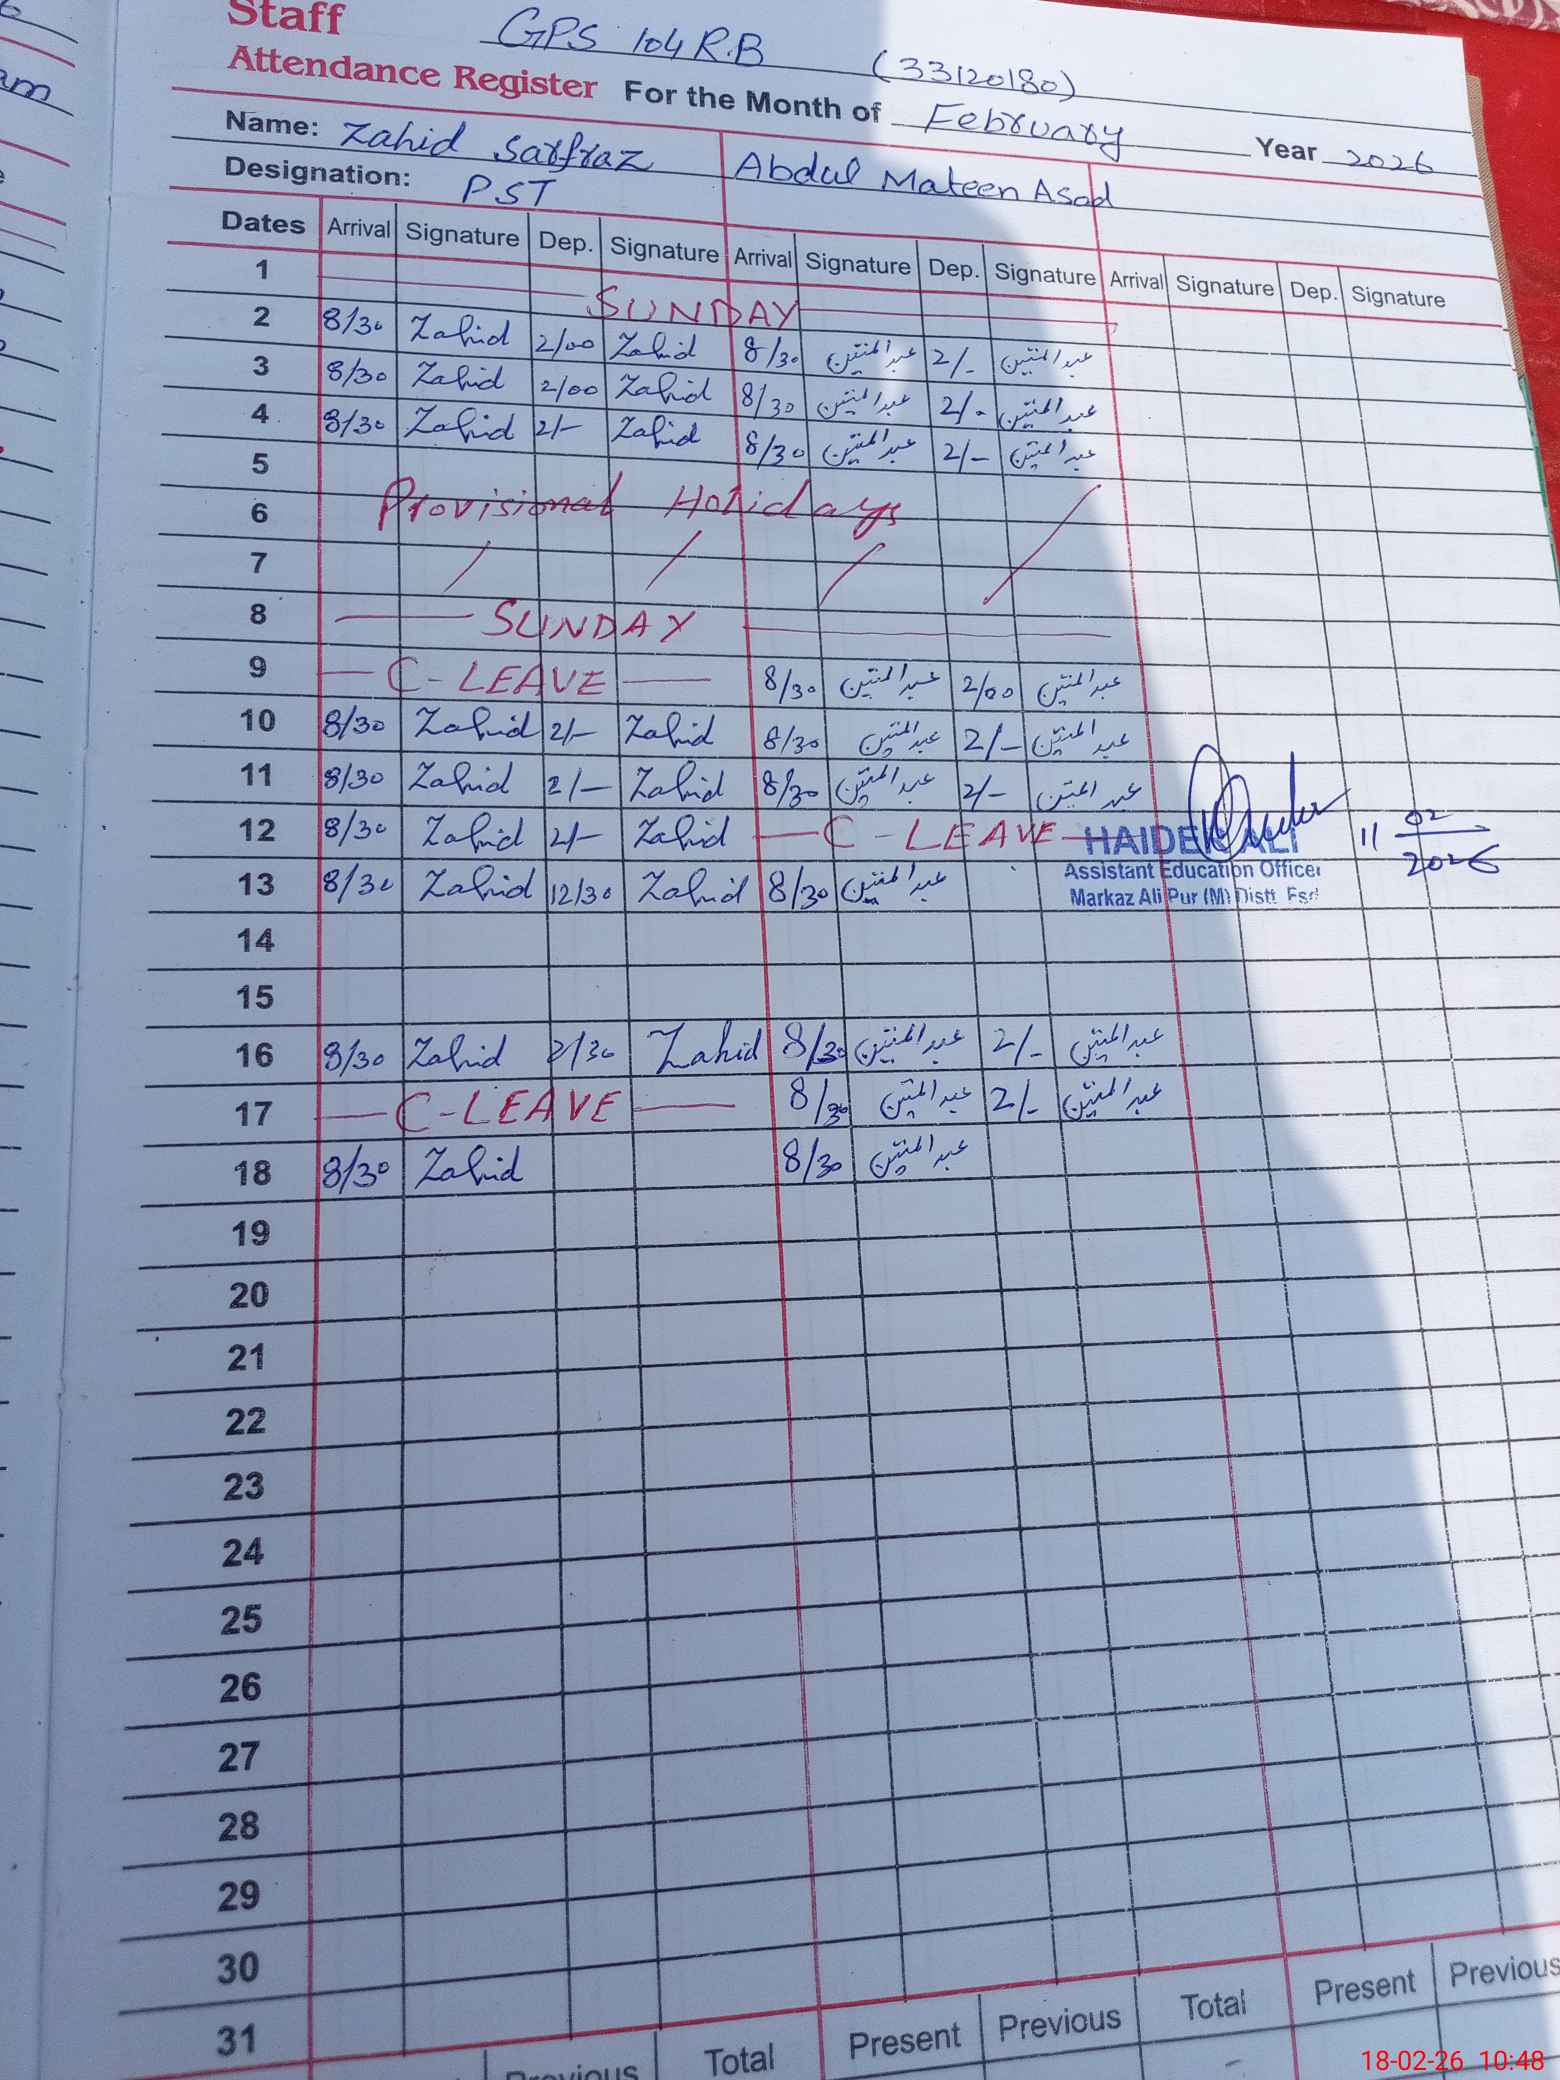 Staff GPS 104 R.B (33120180)
Attendance Register For the Month of February Year 2026
Name: Zahid Sarfraz Abdul Mateen Asad
Designation: PST
Dates Arrival Signature Dep. Signature Arrival Signature Dep. Signature Arrival Signature Dep. Signature
1 SUNDAY
2 8/30 Zahid 2/00 Zahid 8/30 عبدالمتین 2/- عبدالمتین
3 8/30 Zahid 2/00 Zahid 8/30 عبدالمتین 2/- عبدالمتین
4 8/30 Zahid 2/- Zahid 8/30 عبدالمتین 2/- عبدالمتین
5
6 Provisional Holidays
7
8 SUNDAY
9 C-LEAVE 8/30 عبدالمتین 2/00 عبدالمتین
10 8/30 Zahid 2/- Zahid 8/30 عبدالمتین 2/- عبدالمتین
11 8/30 Zahid 2/- Zahid 8/30 عبدالمتین 2/- عبدالمتین
12 8/30 Zahid 2/- Zahid C-LEAVE
HAIDER ALI 11 02 2026
Assistant Education Officer
Markaz Ali Pur (M) Distt. Fsd
13 8/30 Zahid 12/30 Zahid 8/30 عبدالمتین
14
15
16 8/30 Zahid 2/30 Zahid 8/30 عبدالمتین 2/- عبدالمتین
17 C-LEAVE 8/30 عبدالمتین 2/- عبدالمتین
18 8/30 Zahid 8/30 عبدالمتین
19
20
21
22
23
24
25
26
27
28
29
30
31
Previous Total Present Previous Total Present Previous
18-02-26 10:48